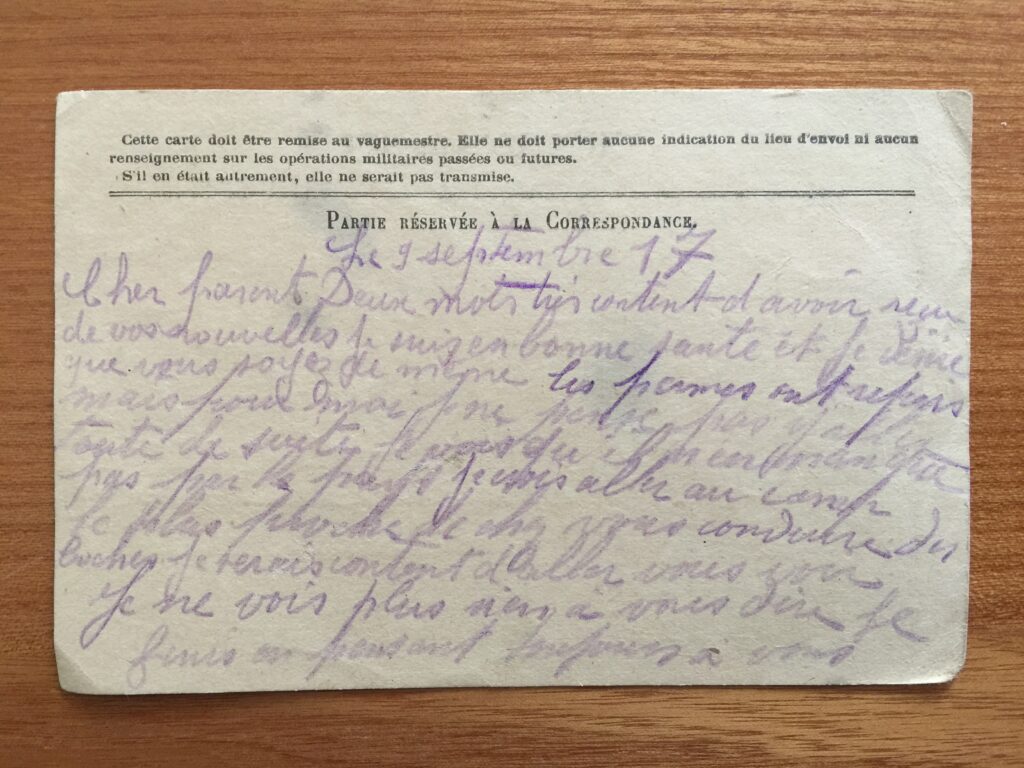 Cette carte doit être remise au vaguemestre. Elle ne doit porter aucune indication du lieu d'envoi ni aucun
renseignement sur les opérations militaires passées ou futures.
S'il en était autrement, elle ne serait pas transmise.
PARTIE RÉSERVÉE À LA CORRESPONDANCE.
Le 9 septembre 17
Cher parent Deux mots très content d avoir recu
de vos nouvelles je suis en bonne santé et je pense
que vous soyez de même les permes ont repris
mais pour moi je ne pense pas y aller
toute de suite je vois qu il n en manque
pas par le pays je vais aller au camp
le plus proche de chez vous conduire des
boches je serais content d aller vous voir
Je ne vois plus rien à vous dire Je
finis en pensant toujours à vous